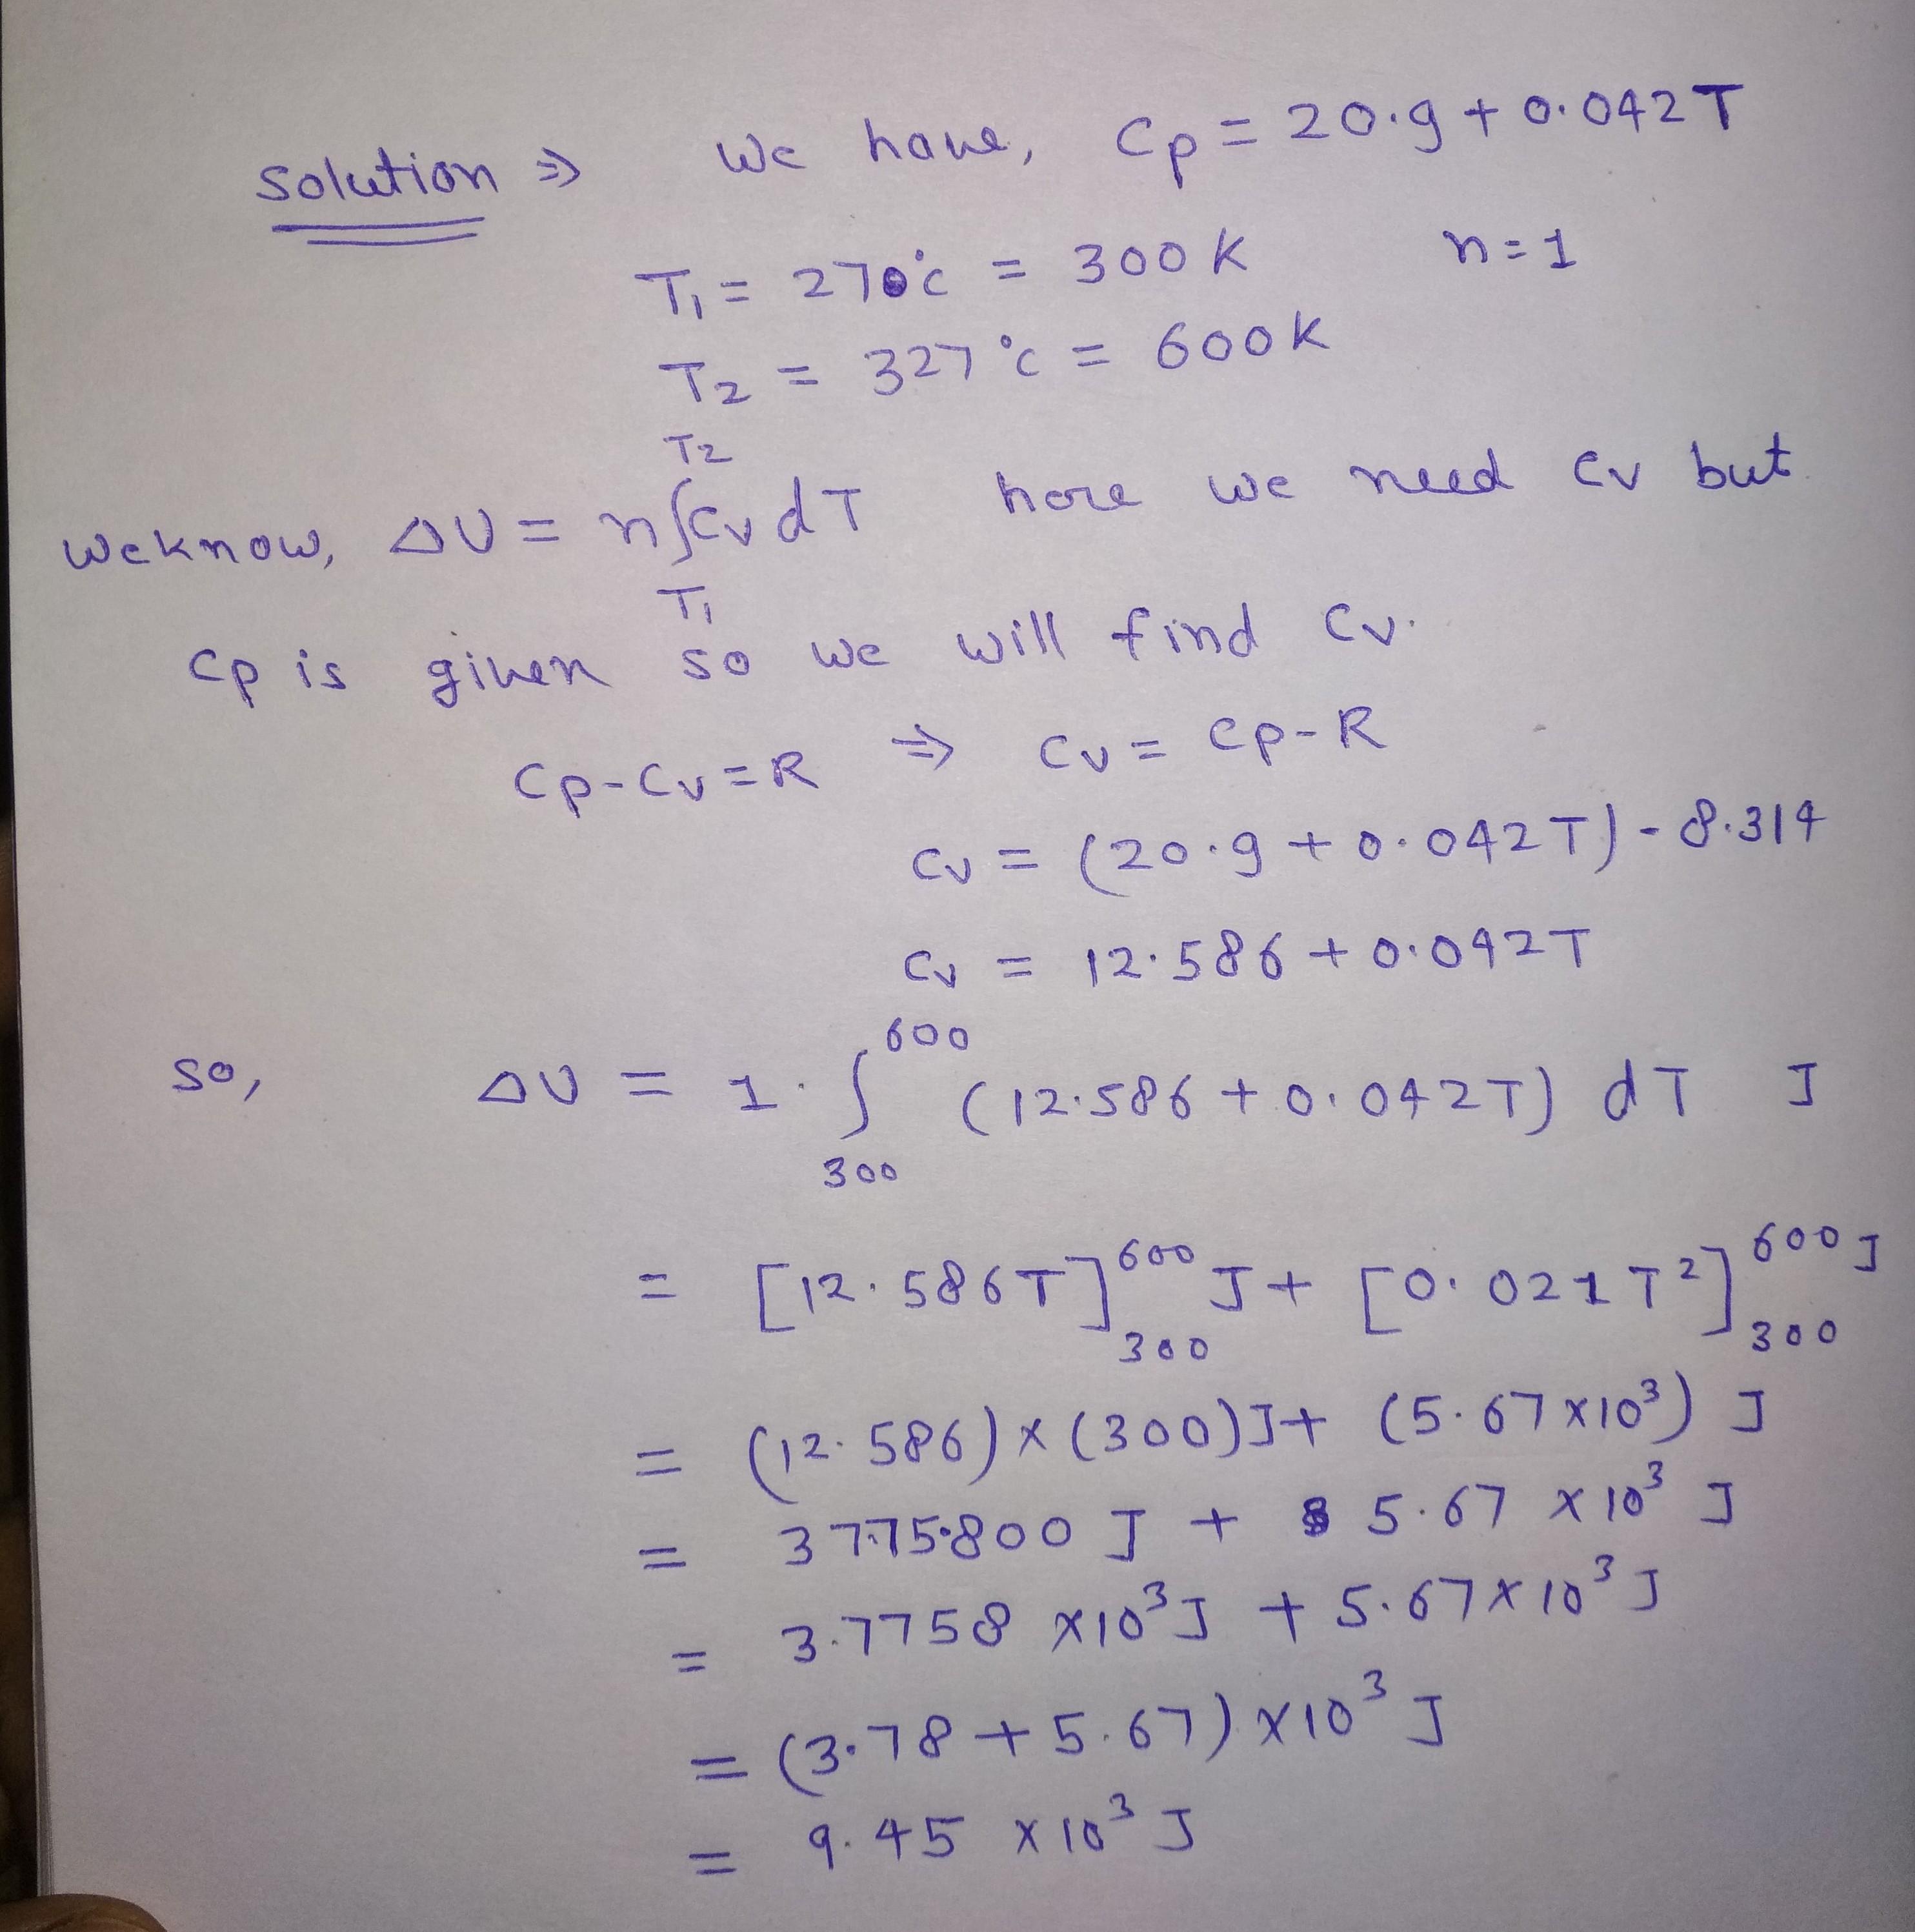 Solution ⇒ We have, Cp = 20.9 + 0.042T
T₁ = 27°C = 300 K n=1
T₂ = 327°C = 600K
We know, ΔU = n∫Cv dT here we need Cv but
T₂
T₁
Cp is given so we will find Cv.
Cp-Cv=R ⇒ Cv = Cp-R
Cv = (20.9 + 0.042T) - 8.314
Cv = 12.586 + 0.042T
so, ΔU = 1.∫₃₀₀⁶⁰⁰ (12.586 + 0.042T) dT J
= [12.586T]₃₀₀⁶⁰⁰ J + [0.021T²]₃₀₀⁶⁰⁰ J
= (12.586)×(300)J + (5.67×10³) J
= 3775.800 J + 5.67 × 10³ J
= 3.7758 ×10³J + 5.67×10³J
= (3.78 + 5.67) ×10³ J
= 9.45 ×10³ J